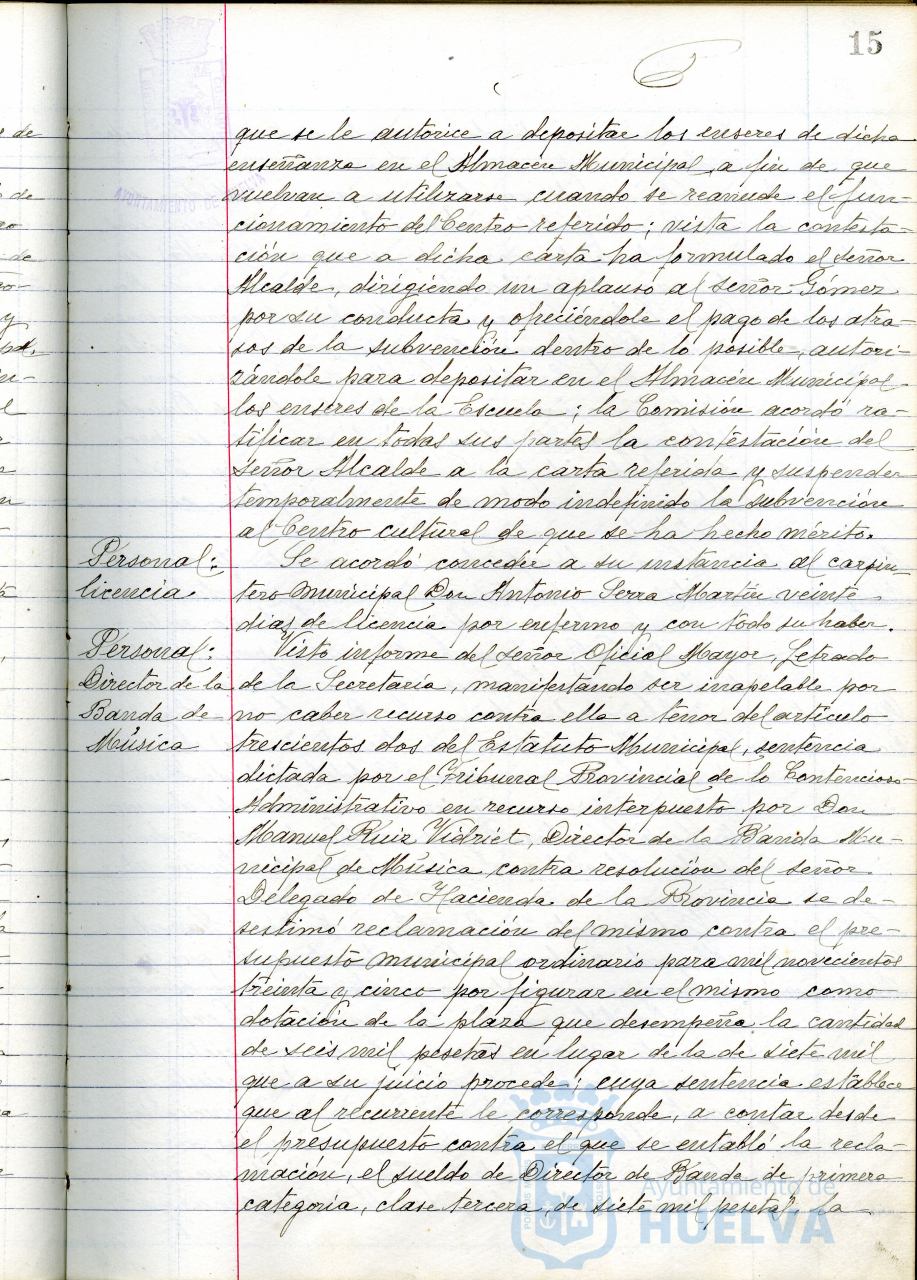 15
que se le autorice a depositar los enseres de dicha
enseñanza en el Almacén Municipal a fin de que
vuelvan a utilizarse cuando se reanude el fun-
cionamiento del Centro referido; vista la contesta-
ción que a dicha carta ha formulado el señor
Alcalde, dirigiendo un aplauso al señor Gómez
por su conducta y ofreciéndole el pago de los atra-
sos de la subvención dentro de lo posible, autori-
zándole para depositar en el Almacén Municipal
los enseres de la Escuela; la Comisión acordó ra-
tificar en todas sus partes la contestación del
señor Alcalde a la carta referida y suspender
temporalmente de modo indefinido la subvención
al Centro cultural de que se ha hecho mérito.
Personal:
licencia
Se acordó conceder a su instancia al carpin-
tero municipal Don Antonio Serra Martín veinte
dias de licencia por enfermo y con todo su haber.
Personal:
Director de la
Banda de
Música
Visto informe del señor Oficial Mayor, Letrado
de la Secretaría, manifestando ser inapelable por
no caber recurso contra ella a tenor del artículo
trescientos dos del Estatuto Municipal, sentencia
dictada por el Tribunal Provincial de lo Contencioso-
Administrativo en recurso interpuesto por Don
Manuel Ruiz Vidriet, Director de la Banda Mu-
nicipal de Música, contra resolución del señor
Delegado de Hacienda de la Provincia se de-
sestimó reclamación del mismo contra el pre-
supuesto municipal ordinario para mil novecientos
treinta y cinco por figurar en el mismo como
dotación de la plaza que desempeña la cantidad
de seis mil pesetas en lugar de la de siete mil
que a su juicio procede; cuya sentencia establece
que al recurrente le corresponde, a contar desde
el presupuesto contra el que se entabló la recla-
mación, el sueldo de Director de Banda de primera
categoría, clase tercera, de siete mil pesetas, La
AYUNTAMIENTO DE
Ayuntamiento de
HUELVA